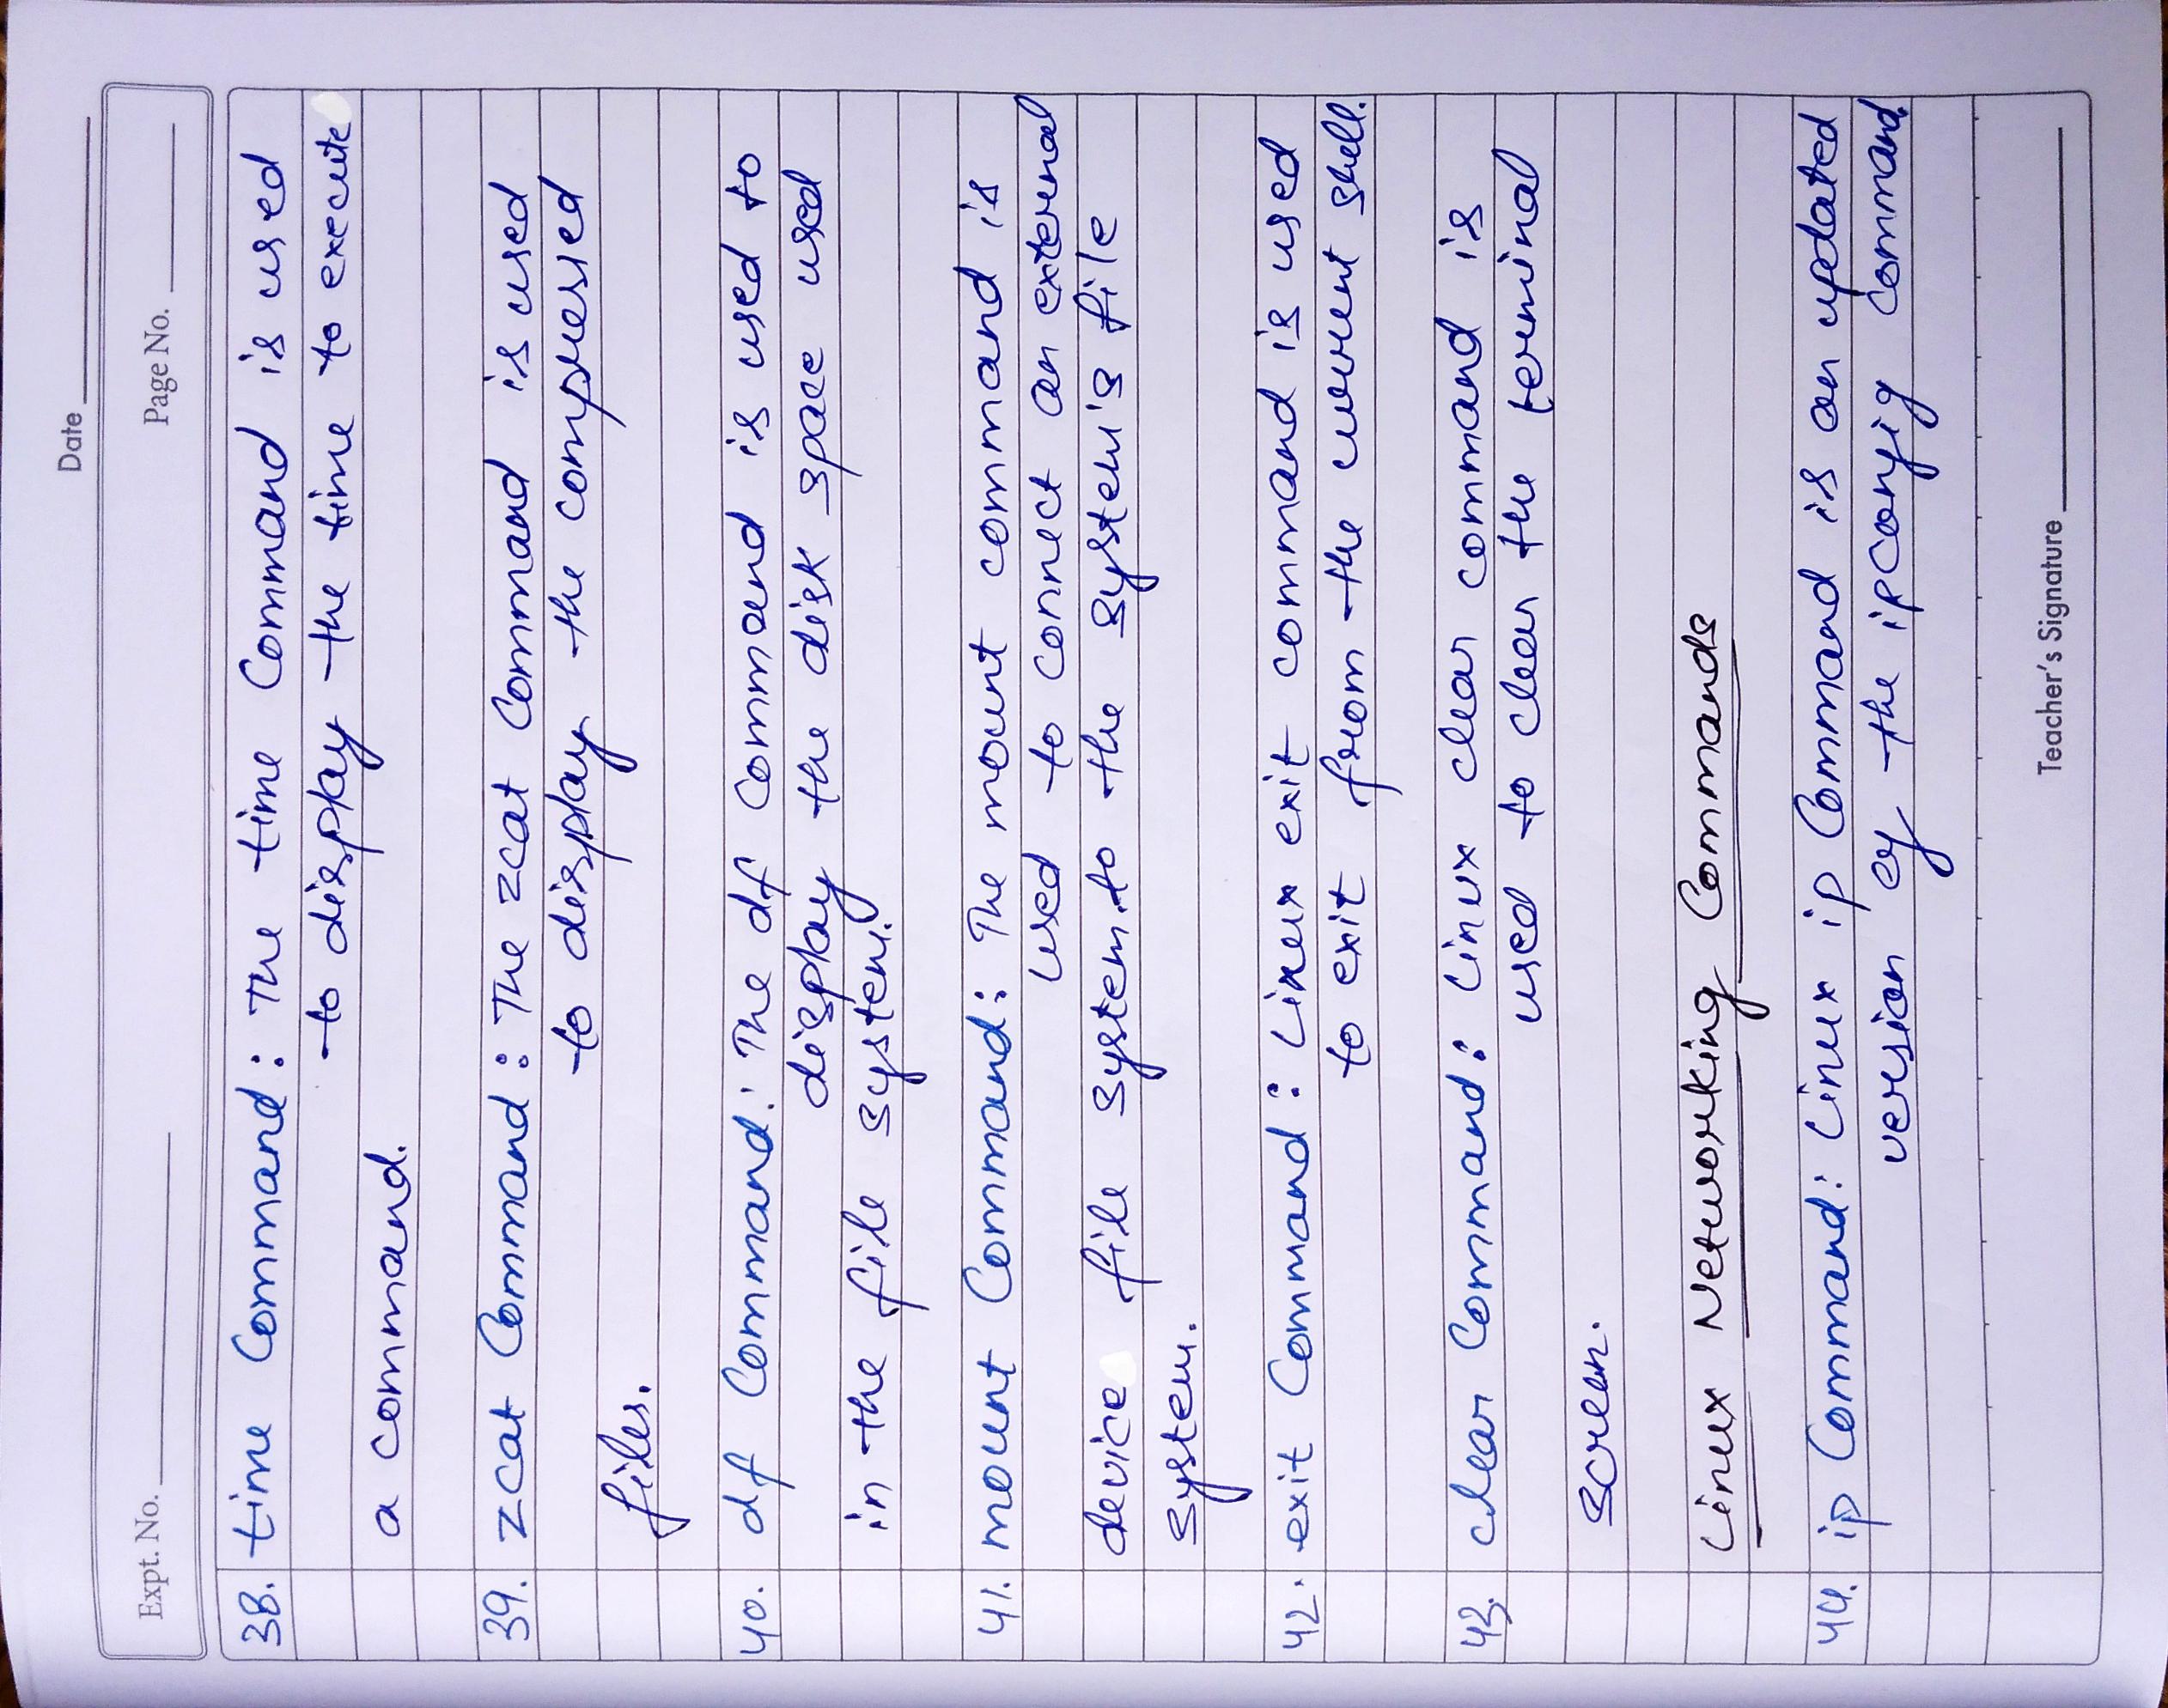 Date
Expt. No.
Page No.
38. time Command : The time Command is used
to display the time to execute
a command.
39. zcat Command : The zcat Command is used
to display the compressed
files.
40. df Command : The df Command is used to
display the disk space used
in the file system.
41. mount Command : The mount command is
used to connect an external
device file system to the system's file
system.
42. exit Command : Linux exit command is used
to exit from the current shell.
43. clear Command : Linux clear command is
used to clear the terminal
screen.
Linux Networking Commands
44. ip Command : Linux ip Command is an updated
version of the ipconfig command.
Teacher's Signature